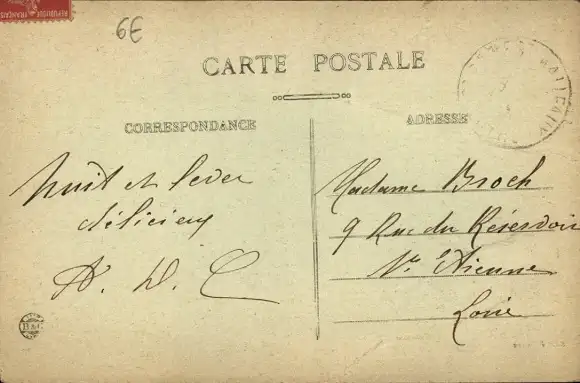 RÉPUBLIQUE FRANÇAISE
6E
CARTE POSTALE
CORRESPONDANCE
ADRESSE
Nuit et lever
délicieux
A. D. C
Madame Broch
9 Rue du Réservoir
St Etienne
Loire
B&G